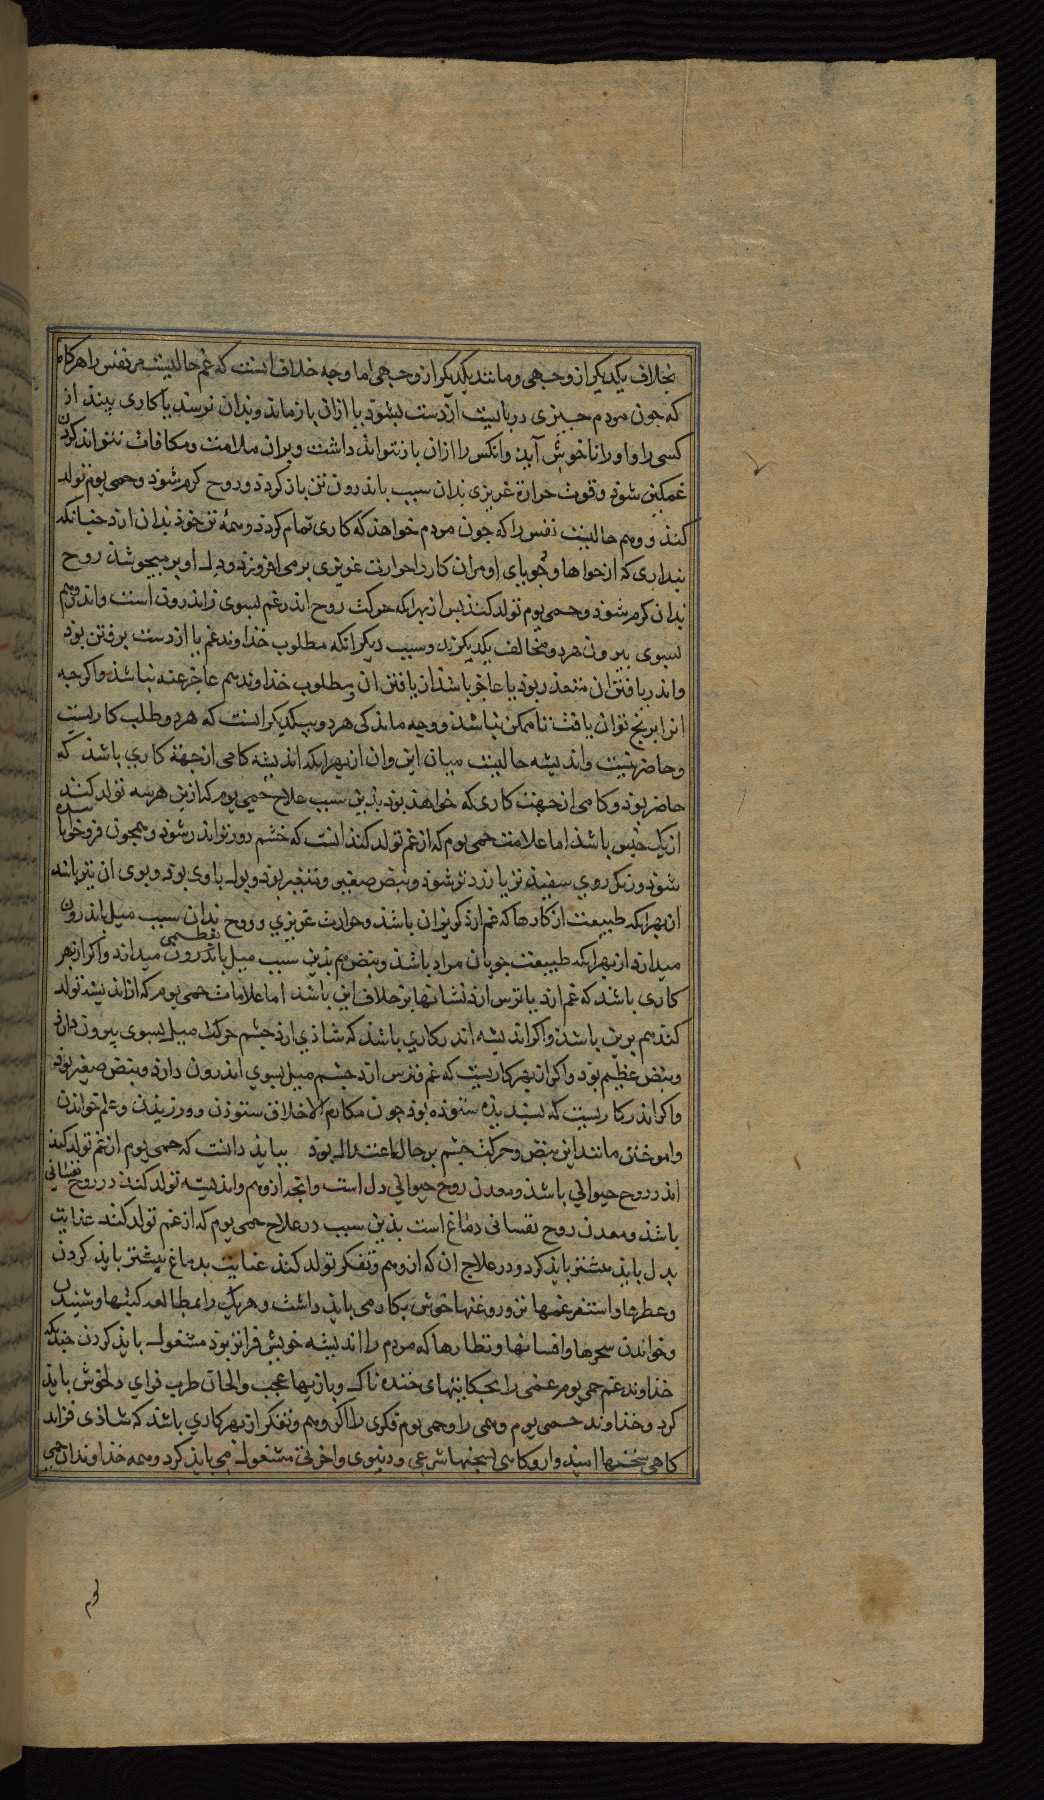 بخلاف یکدیکر از وجهی و مانند یکدیکر از وجهی اما وجه خلاف انست که غم حالیست مر نفس را هرکاه
که جون مردم جیزی دربایست از دست بشود یا از اتی باز ماند و بدان نرسد یا کاری بیند از
کسی را و او را ناخوش آید و انکس را از ان باز نتواند داشت و بر ان ملامت و مکافات نتواند کردن
غمکین شود و قوت حرارة غریزی بدان سبب باندرون تن باز کردد و روح کرم شود و حمی یوم تولد
کند و وهم حالیست نفس را که جون مردم خواهد که کاری تمام کردد و همهٔ تن خود بدان ارد جنانکه
بنداری که از حواها و جویای او مران کار را حرارت غریزی بر می افروزد و دل او بر میجوشد روح
بدان کرم شود و حمی یوم تولد کند بس از بهر انکه حرکت روح اندر غم بسوی اندرون است و اندر وهم
بسوی بیرون هر دو مخالف یکدیکرند و سبب دیکر انکه مطلوب خداوند غم یا از دست برفتن بود
و اندر یافتن ان متعذر بود یا عاجز باشد از یافتن ان و مطلوب خداوند وهم عاجز عنه نباشد و اکرجه
انرا برنج توان یافت ناممکن نباشد و وجه مانندکی هر دو بیکدیکر انست که هر دو طلب کاریست
و حاضر نیست و اندیشه حالیست میان این و ان از بهر انکه اندیشه کاهی از جهة کاری باشد که
حاضر بود و کاهی از جهت کاری که خواهد بود بدین سبب علاج حمی یوم که ازین هر سه تولد کند
از یک جنس باشد اما علامت حمی یوم که از غم تولد کند انست که خشم دور تواند رشود و همجون فرو خوابا شده
شود و رنک روی سفیدتر یا زردتر شود و نبض صغیر و متغیر بود و بول با وی بود و بوی ان تیز باشد
از بهر انکه طبیعت از کارها که غم ارد کریزان باشد و حرارت غریزی و روح بدان سبب میل باندرون
میدارد از بهر انکه طبیعت جویان مراد باشد و نبض هم بدین سبب میل باندرون میدارد و اکر از بهر
کاری باشد که غم ارد یا ترس ارد نشانها بر خلاف این باشد اما علامات حمی یوم که از اندیشه تولد
کند هم برین باشد و اکر اندیشه اندر کاری باشد که شادی ارد جشم حرکت میل بسوی بیرون دارد
و نبض عظیم بود و اکر از بهر کاریست که غم و ترس ارد جشم میل بسوی اندرون دارد و نبض صغیر بود
و اکر اندر کاریست که بسندیده ستوده بود جون مکارم الاخلاق ستودن و ورزیدن و علم خواندن
و اموختن مانند این نبض و حرکت جشم بر حال اعتدال بود بباید دانست که حمی یوم از غم تولد کند
اندر روح حیوانی باشد و معدن روح حیوانی دل است و انجه از وهم و اندیشه تولد کند در روح نفسانی
باشد و معدن روح نفسانی دماغ است بدین سبب در علاج حمی یوم که از غم تولد کند عنایت
بدل باید بیشتر باید کرد و در علاج ان که از وهم و تفکر تولد کند عنایت بدماغ بیشتر باید کردن
و عطرها و استفرغمها تر و روغنها خوش بکار می باید داشت و هر یک را بمطالعه کتبها و شنیدن
و خواندن سمرها و افسانها و نظارها که مردم را اندیشه خویش فراتر بود مشغول باید کردن جنانکه
خداوند غم حمی یوم غمی را بحکایتهای خنده ناک و بازیها عجب و الحان طرب فزای دلخوش باید
کرد و خداوند حمی یوم وهمی را و حمی یوم فکری را اکر وهم و تفکر از بهر کاری باشد که شادی فزاید
کاهی سخنها امیدوار و کاهی بسخنها شرعی و دنیوی و اخرتی مشغول می باید کرد و همه خداوندان حمی